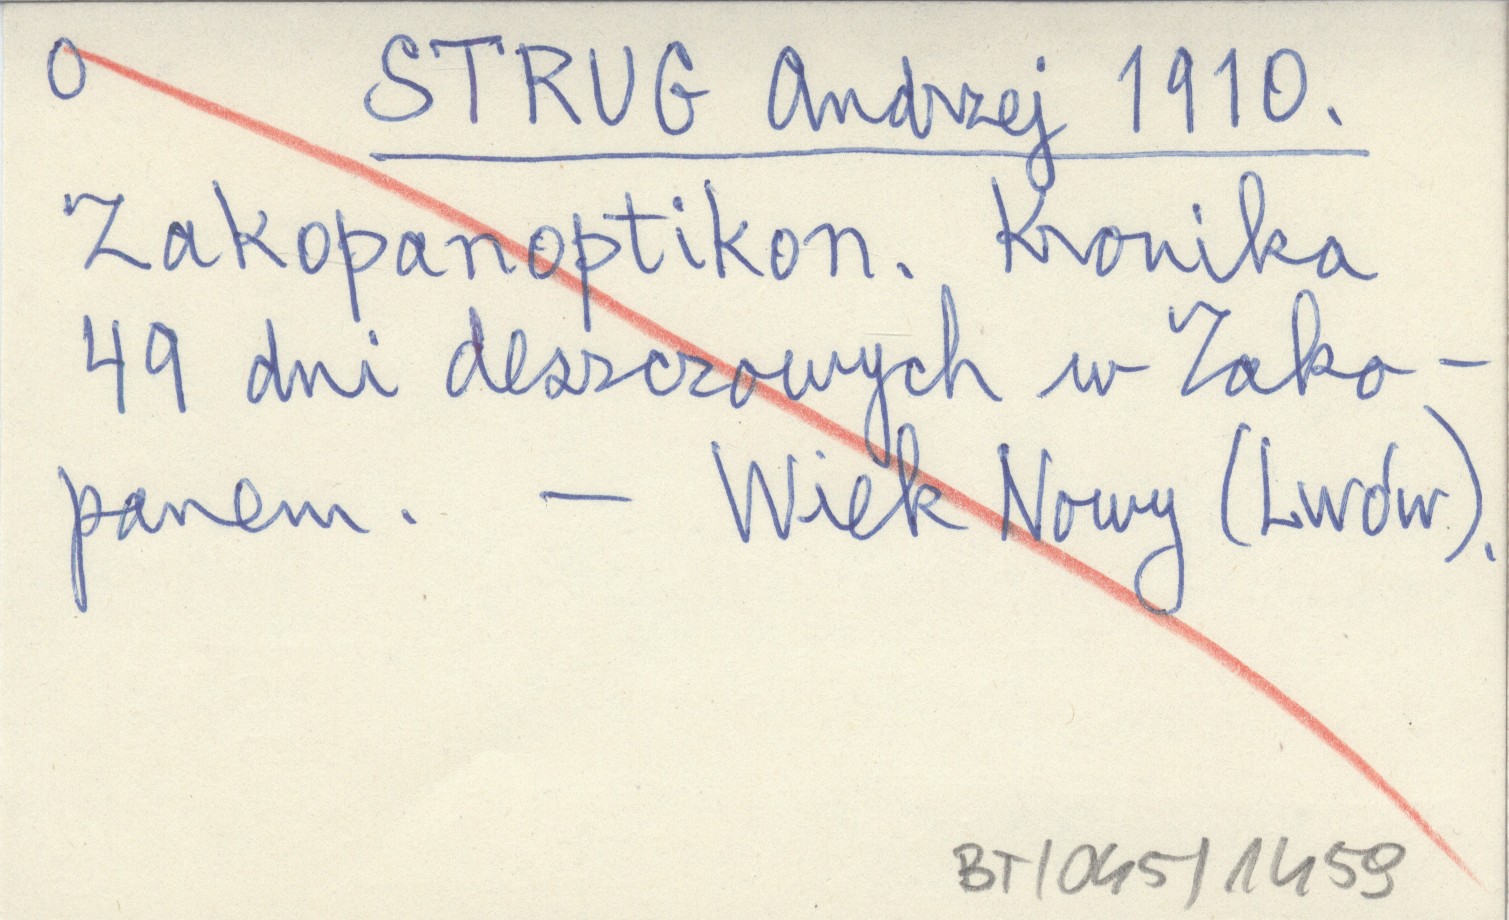 0 STRUG Andrzej 1910.
Zakopanoptikon. Kronika
49 dni deszczowych w Zako-
panem. — Wiek Nowy (Lwów).
BT/045/1459